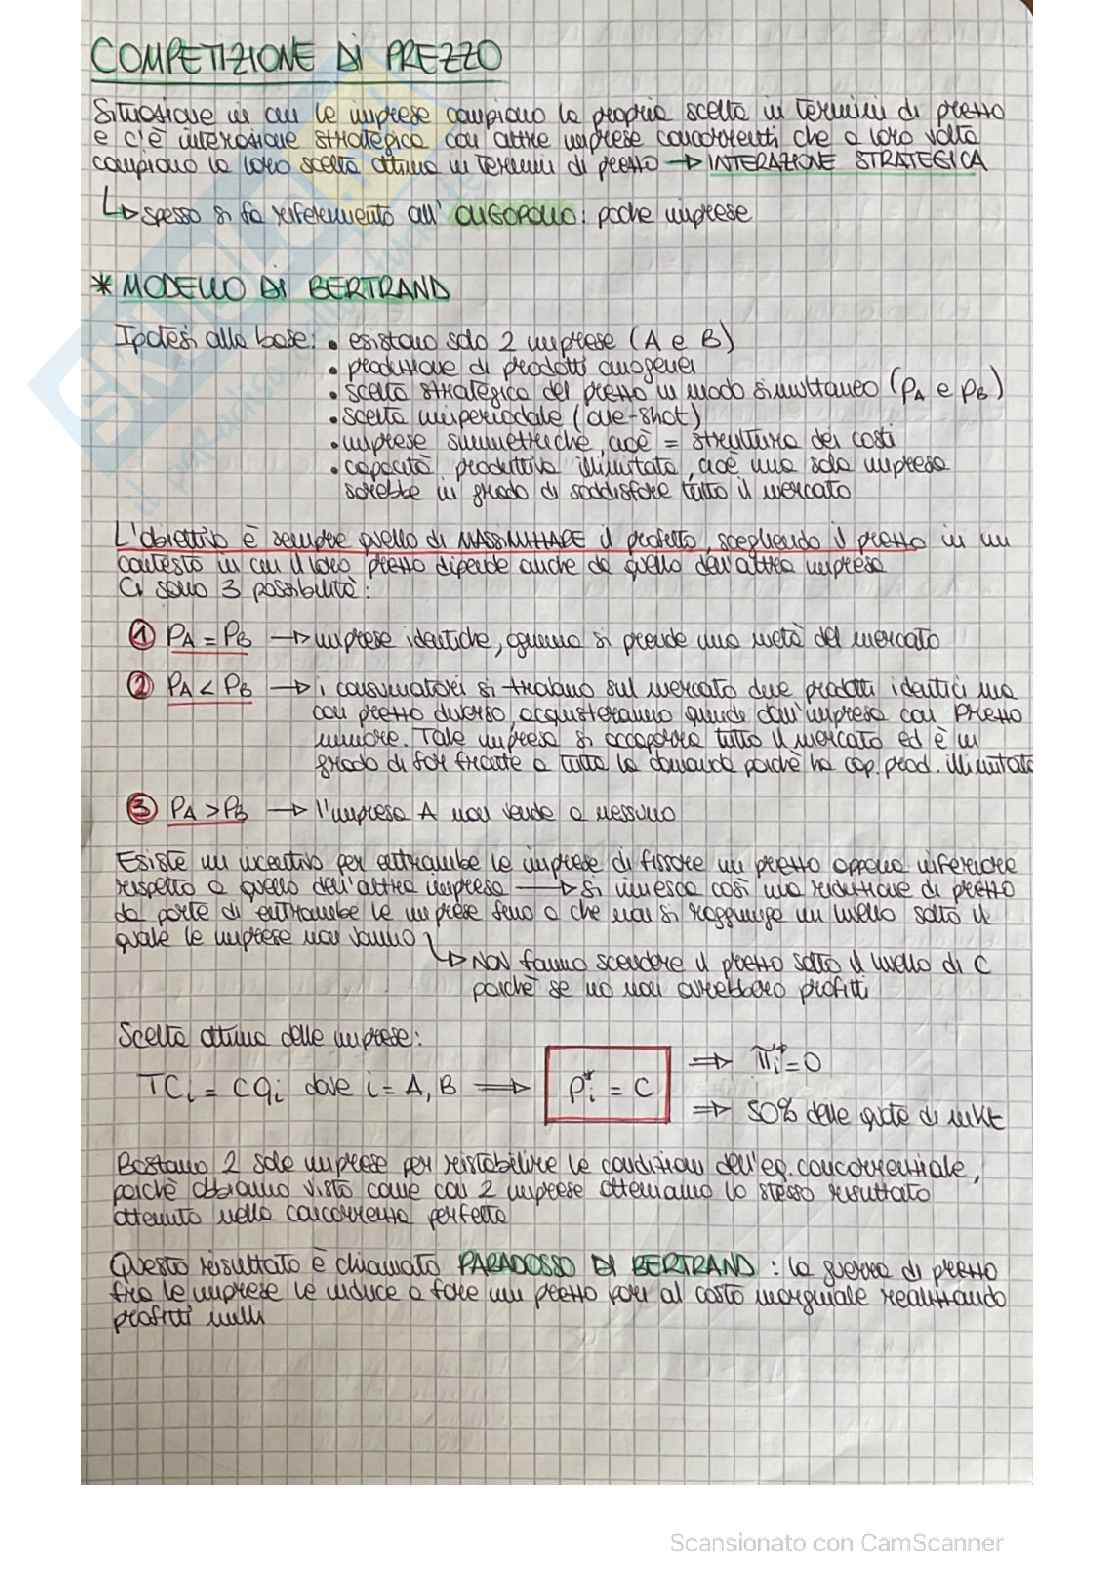 COMPETIZIONE DI PREZZO
Situazione in cui le imprese compiono la propria scelta in termini di prezzo
e c'è interazione strategica con altre imprese concorrenti che a loro volta
compiono la loro scelta ottima in termini di prezzo → INTERAZIONE STRATEGICA
↳ spesso si fa riferimento all' OLIGOPOLIO: poche imprese
* MODELLO DI BERTRAND
Ipotesi alla base: • esistono solo 2 imprese (A e B)
• produzione di prodotti omogenei
• scelta strategica del prezzo in modo simultaneo (PA e PB)
• scelta uniperiodale (one-shot)
• imprese simmetriche, cioè = struttura dei costi
• capacità produttiva illimitata, cioè una sola impresa
sarebbe in grado di soddisfare tutto il mercato
L'obiettivo è sempre quello di MASSIMIZZARE il profitto, scegliendo il prezzo in un
contesto in cui il loro prezzo dipende anche da quello dell'altra impresa
Ci sono 3 possibilità:
① PA = PB → imprese identiche, ognuna si prende una metà del mercato
② PA < PB → i consumatori si trovano sul mercato due prodotti identici ma
con prezzo diverso, acquisteranno quindi dall'impresa con prezzo
minore. Tale impresa si accaparra tutto il mercato ed è in
grado di far fronte a tutta la domanda poichè ha cap. prod. illimitata
③ PA > PB → l'impresa A non vende a nessuno
Esiste un incentivo per entrambe le imprese di fissare un prezzo appena inferiore
rispetto a quello dell'altra impresa → si innesca così una riduzione di prezzo
da parte di entrambe le imprese fino a che non si raggiunge un livello sotto il
quale le imprese non vanno
↳ NON fanno scendere il prezzo sotto il livello di C
poichè se no non avrebbero profitti
Scelta ottima delle imprese:
TCi = Cqi dove i = A, B ⇒ Pi* = C ⇒ πi* = 0
⇒ 50% delle quote di mkt
Bastano 2 sole imprese per ristabilire le condizioni dell'eq. concorrenziale,
poichè abbiamo visto come con 2 imprese otteniamo lo stesso risultato
ottenuto nella concorrenza perfetta
Questo risultato è chiamato PARADOSSO DI BERTRAND: la guerra di prezzo
fra le imprese le induce a fare un prezzo pari al costo marginale realizzando
profitti nulli
Scansionato con CamScanner